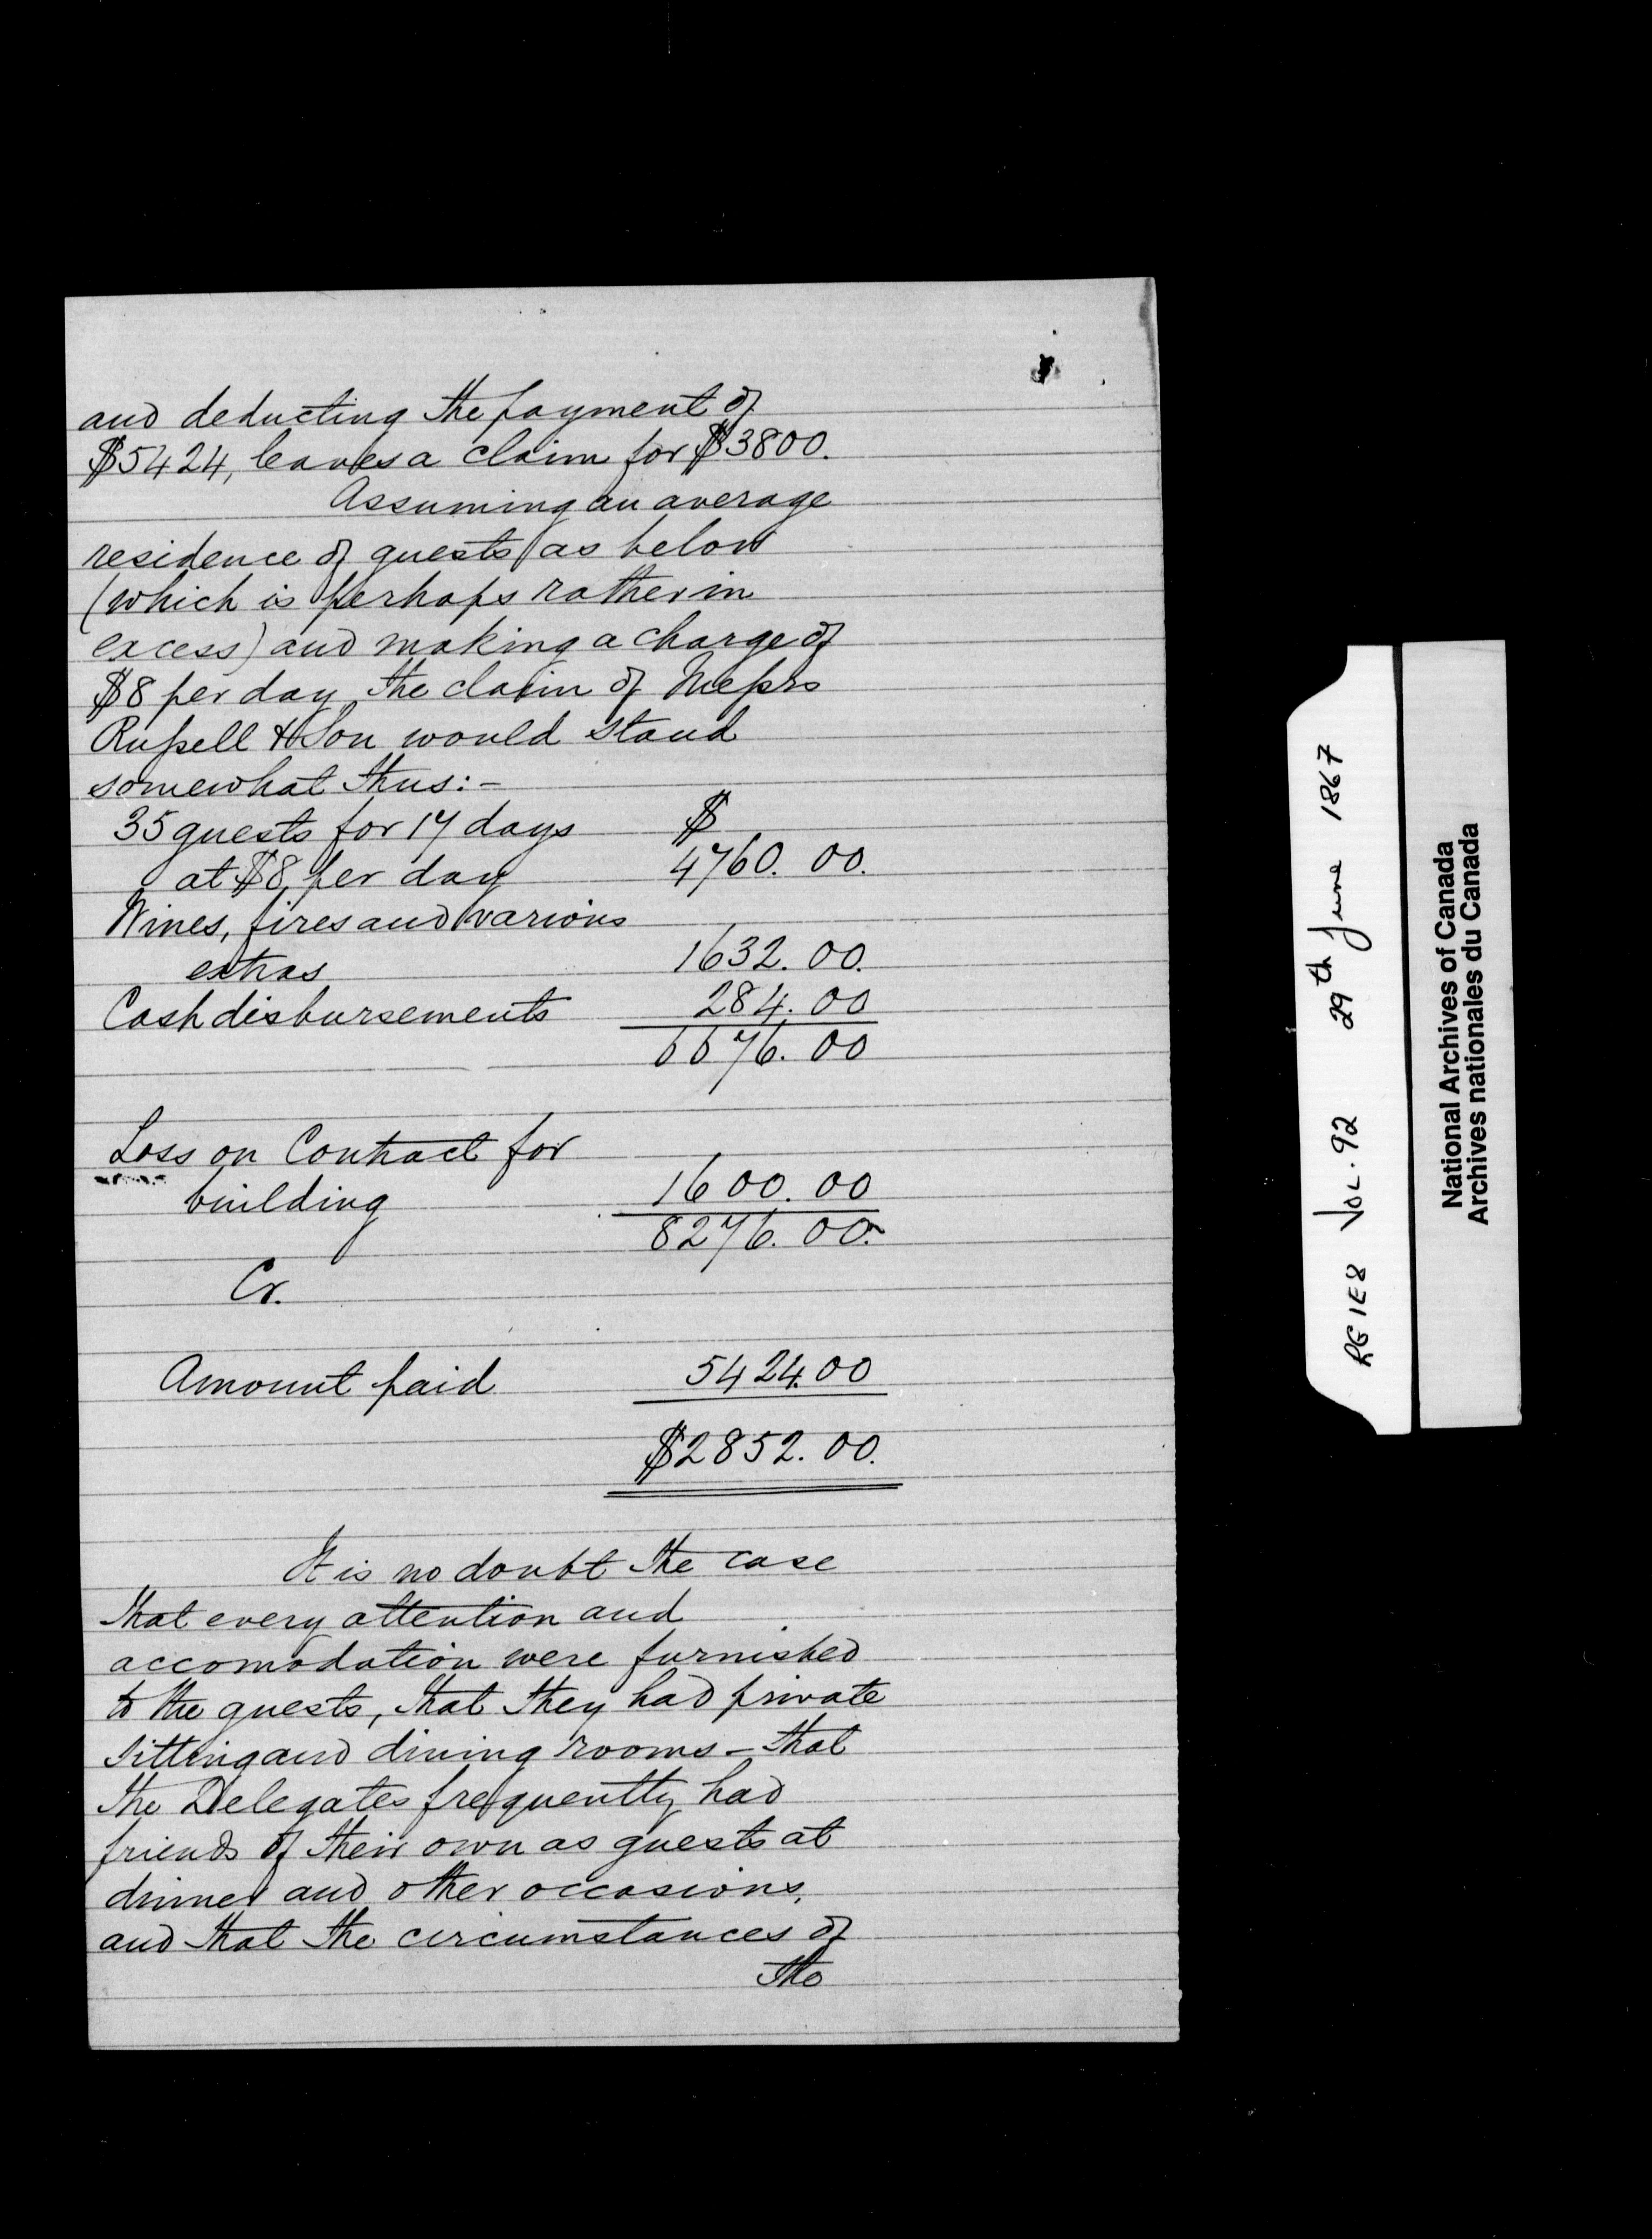 and deducting the payment of
$5424, leaves a claim for $3800.
Assuming an average
residence of guests as below
(which is perhaps rather in
excess) and making a charge of
$8 per day, the claim of Messrs
Russell & Son would stand
somewhat thus:-
35 guests for 17 days $
at $8 per day 4760.00.
Wines, fires and various
extras 1632.00.
Cash disbursements 284.00
6676.00
Loss on Contract for
building 1600.00
8276.00.
Cr.
Amount paid 5424.00
$2852.00.
It is no doubt the case
that every attention and
accomodation were furnished
to the guests, that they had private
sitting and dining rooms - that
the Delegates frequently had
friends of their own as guests at
dinner and other occasions,
and that the circumstances of
the
RG 1E8 VOL. 92 29th June 1867
National Archives of Canada
Archives nationales du Canada